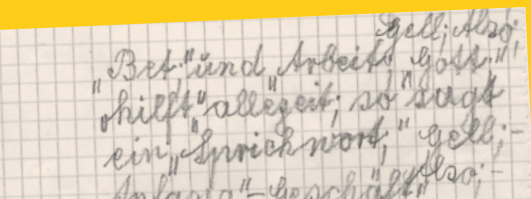 Gell; Also;
„Bet;" und „Arbeit; Gott;"
„hilft;" allezeit; so" sagt
ein; „Sprichwort;" gell;-
Anfang"-Geschäft" Also;-